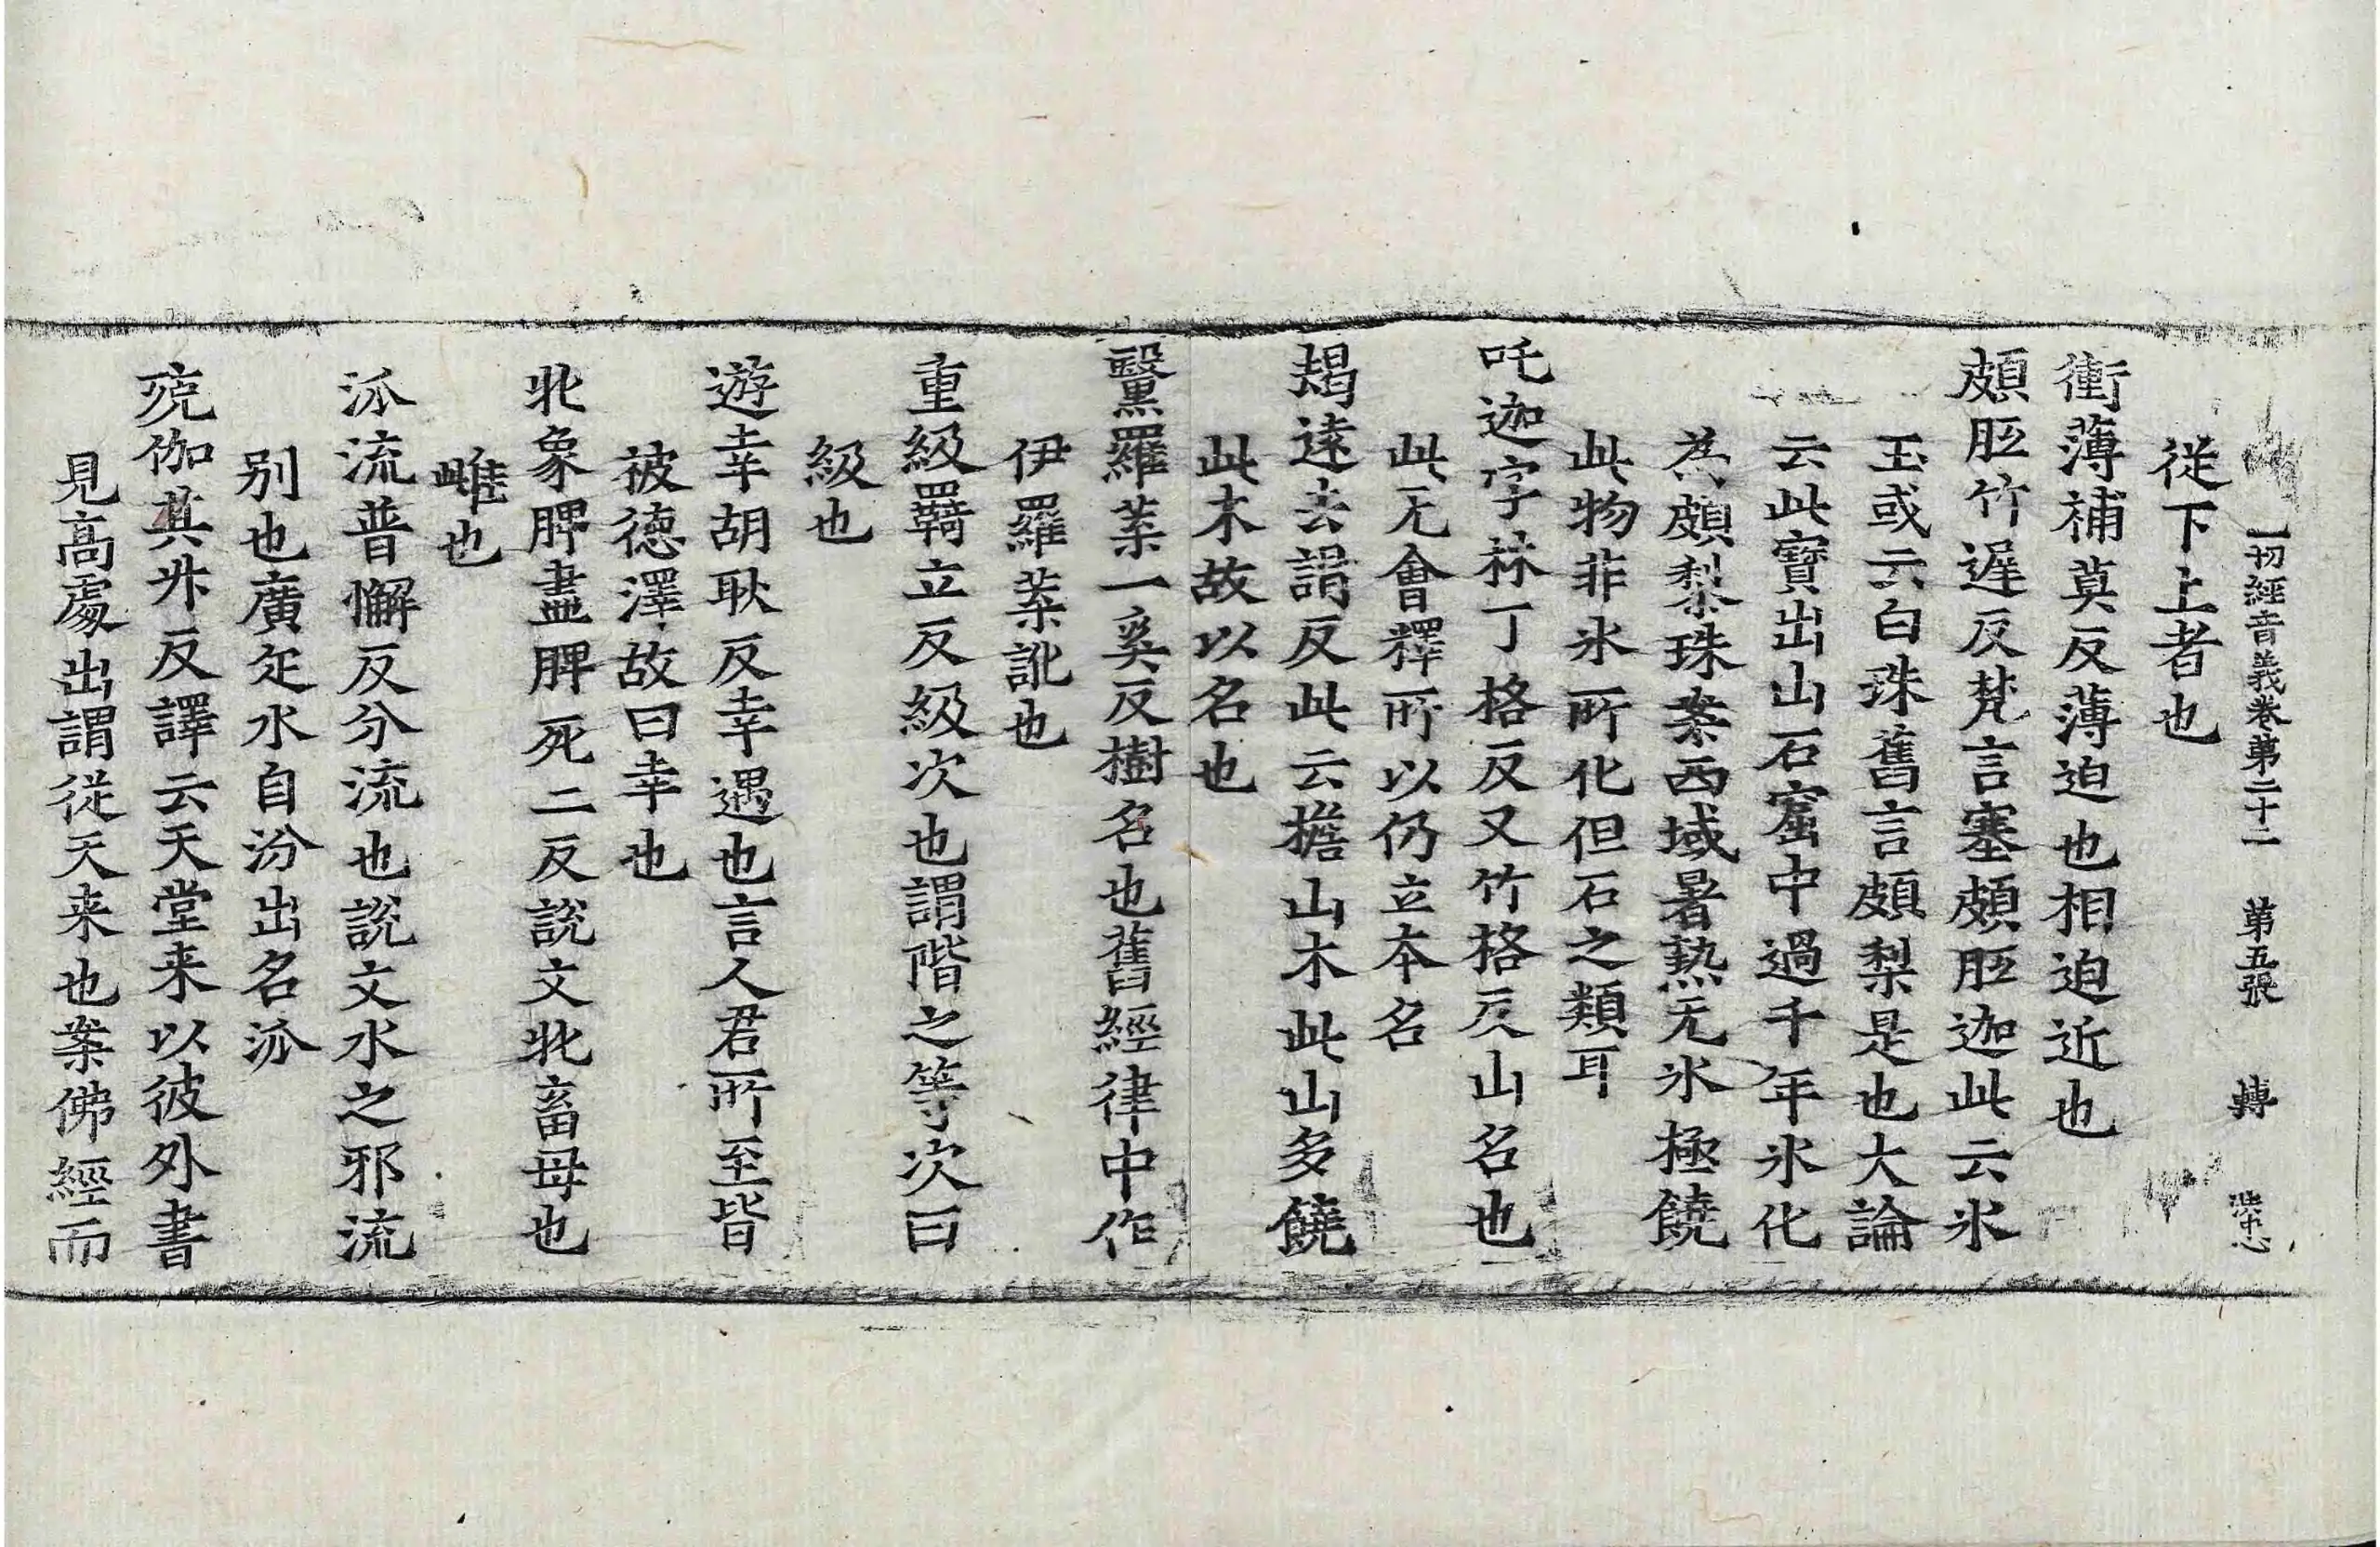 一切經音義卷第二十二 第五張 轉
從下上者也
衝薄補莫反薄迫也相迫近也
頗胝竹遲反梵言塞頗胝迦此云氷
玉或云白珠舊言頗梨是也大論
云此寶出山石窟中過千年氷化
為頗梨珠案西域暑熱无氷極饒
此物非氷所化但石之類耳
吒迦字林丁格反又竹格反山名也
此无會釋所以仍立本名
朅達去謁反此云擔山木此山多饒
此木故以名也
黳羅葉一奚反樹名也舊經律中作
伊羅葉訛也
重級羇立反級次也謂階之等次曰
級也
遊幸胡耿反幸遇也言人君所至皆
被德澤故曰幸也
牝象脾盡脾死二反說文牝畜母也
雌也
派流普懈反分流也說文水之邪流
別也廣疋水自汾出名派
殑伽其升反譯云天堂来以彼外書
見高處出謂從天来也案佛經而